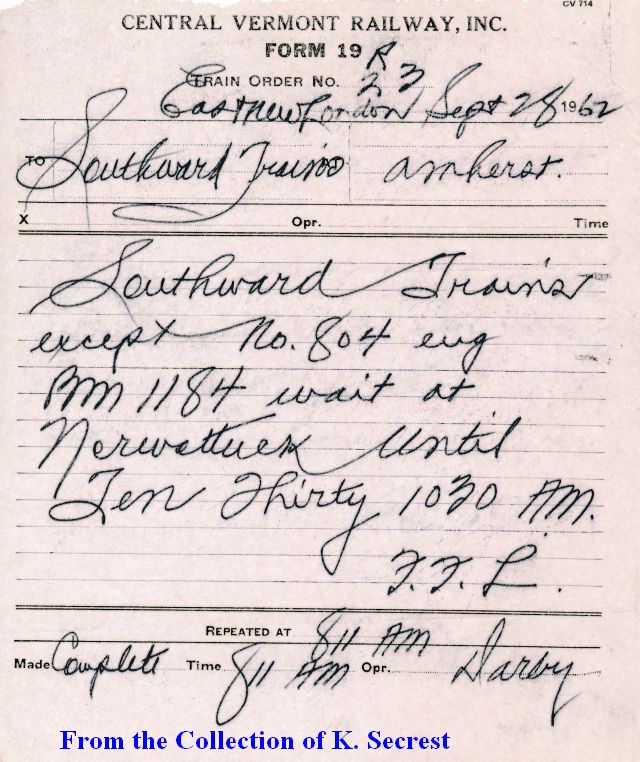 CV 714
CENTRAL VERMONT RAILWAY, INC.
FORM 19 R
TRAIN ORDER NO. 23
East New London Sept 28 1962
TO Southward Trains AT Amherst.
X Opr. Time
Southward Trains
except No. 804 eng
BM 1184 wait at
Norwottuck Until
Ten Thirty 1030 AM.
F. F. L.
REPEATED AT 811 AM
Made Complete Time 811 AM Opr. Darby
From the Collection of K. Secrest